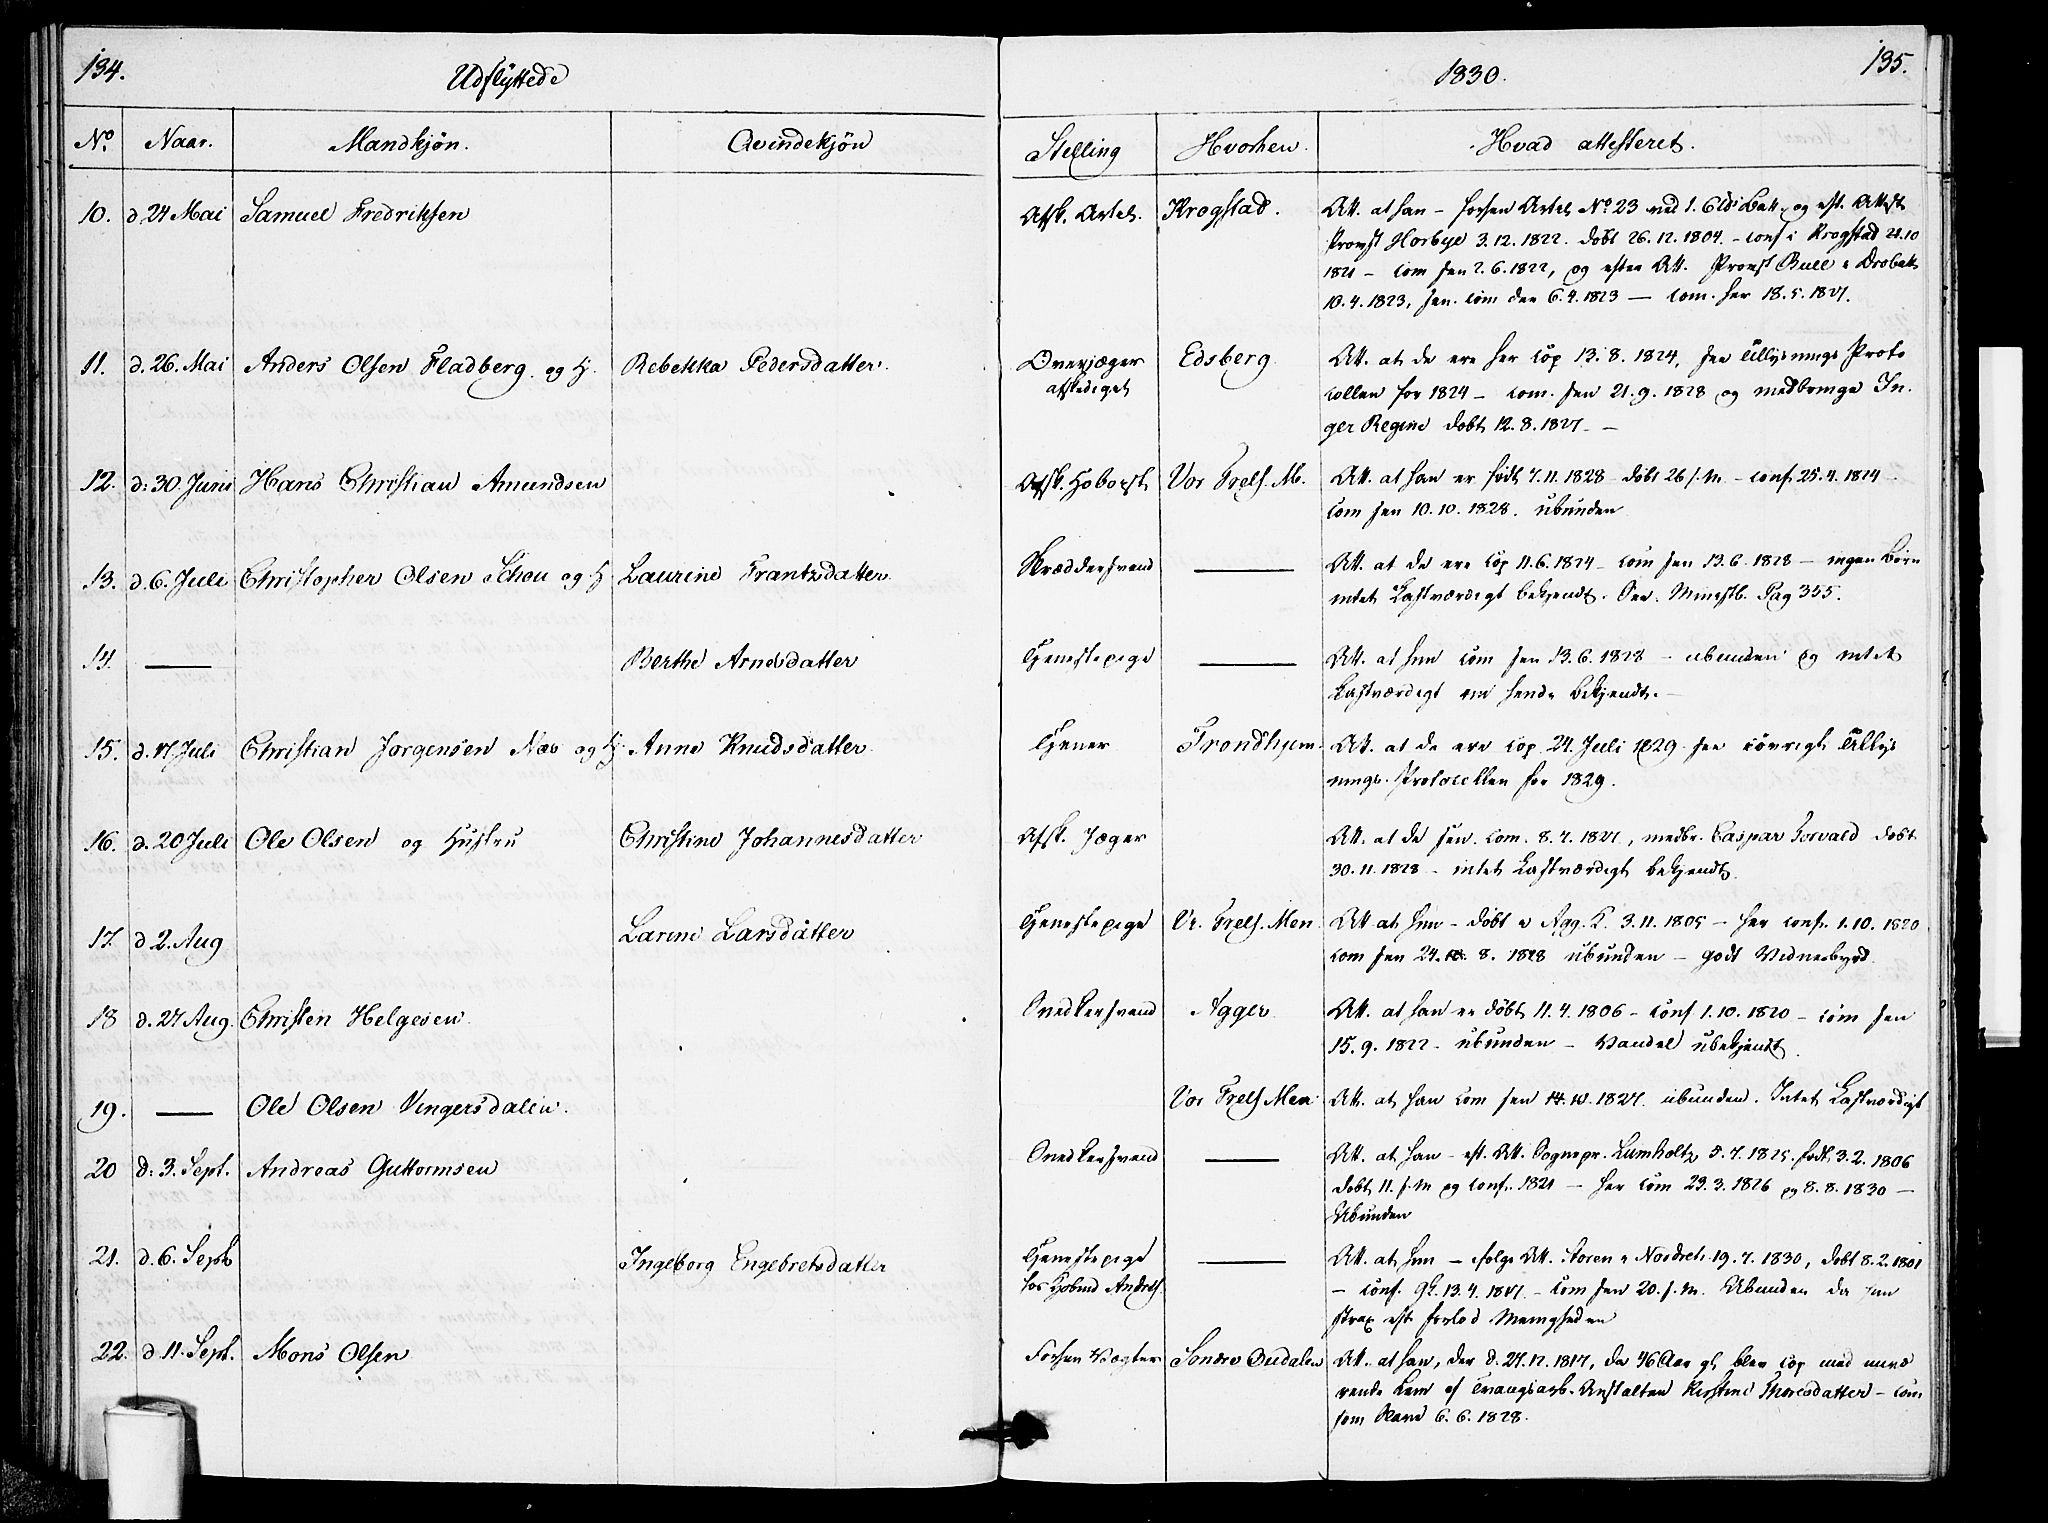 134.
Udflyttede
1830.
135.
No. Naar. Mandkjøn. Qvindekjøn Stelling Hvorhen. Hvad attesteret.
10. d. 24 Mai Samuel Fredriksen Afsk. Artel. Krogstad. Att. at han - forhen Artel. No 23 ved 1. Eldb Batt. og eft. Attest
Provst Horbye 3.12.1822. døbt 26.12.1804 - conf i Krogstad 21.10
1821 - com sen 2.6.1822, og efter Att. Provst Bull i Drobak
10.4.1823, sen. com der 6.4.1823 - com. her 18.5.1827.
11. d. 26. Mai Anders Olsen Fladberg og H. Rebekka Pedersdatter. Overjæger Edsberg Att. at de ere her cop 13.8.1824, see Tillysnings Proto
afskediget collen for 1824 - com. sen 21.9.1828 og medbringe In-
ger Regine døbt 12.8.1827 -
12. d: 30 Juni Hans Christian Amundsen Afsk. Hoboist Vor Frels. M. Att. at han er født 7.11.1828 døbt 26 s. M - conf 25.4.1814
com sen 10.10.1828. ubunden
13. d. 6. Juli Christopher Olsen Schou og H Laurine Frantzdatter Skreddersvend — Att. at de ere cop 11.6.1824 - com sen 13.6.1828 - ingen Børn
intet Lastværdigt bekjendt. See. Ministb. Pag 355.
14. — Berthe Arnesdatter Tjenestepige — Att. at hun com sen 13.6.1828 - ubunden og intet
Lastværdigt om hende bekjendt. -
15. d. 17 Juli Christian Jørgensen Næs og H. Anne Knudsdatter Tjener Trondhjem. Att. at de ere cop 24. Juli 1829 see iøvrigt Tillys
nings-Protocollen for 1829.
16. d. 20 Juli Ole Olsen og Hustru Christine Johannesdatter Afsk. Jæger Att. at de sen. com. 8.7.1827, medbr. Caspar Torvald døbt
30.11.1828 - intet Lastværdigt bekjendt.
17. d 2. Aug Larine Larsdatter Tjenestepige Vr. Frels. Men Att at hun - døbt i Agg. K. 3.11.1805 - her conf. 1.10.1820
com sen 24. 8. 1828 ubunden - godt Vidnesbyrd
18 d. 27 Aug. Christen Helgesen Snedkersvend Agger Att. at han er døbt 11.4.1806 - conf 1.10.1820 - com sen
15.9.1822 - ubunden - Vandel ubekjendt.
19. — Ole Olsen Vingersdalen. Vor Frels Men Att. at han com sen 14.10.1827. ubunden. Intet Lastværdigt
20 d: 3. Sept. Andreas Guttormsen Snedkersvend — Att. at han - eft. Att. Sognepr. Lumholtz 5.7.1825. født 3.2.1806
døbt 11. s. M og conf. 1821 - her com 29.3.1826 og 8.8.1830 -
Ubunden
21. d. 6. Sept Ingeborg Engebretsdatter Tjenestepige — Att. at hun - følge Att. Storen i Nordreh. 19.7.1830, døbt 8.2.1801
hos Kjøbmd Andres. - conf. 13.4.1817 - com sen 20. s. M. Ubunden da hun
strax eft forlod Menigheden
22. d. 11. Sept. Mons Olsen Forhen Vægter Søndre Oudalen Att. at han, der d. 27.12.1817, da 46 Aar gl. blev cop med nuvæ
rende Lem af Tvangsarb. Anstalten Kirstine Thoresdatter - com
som Slave 6.6.1828.